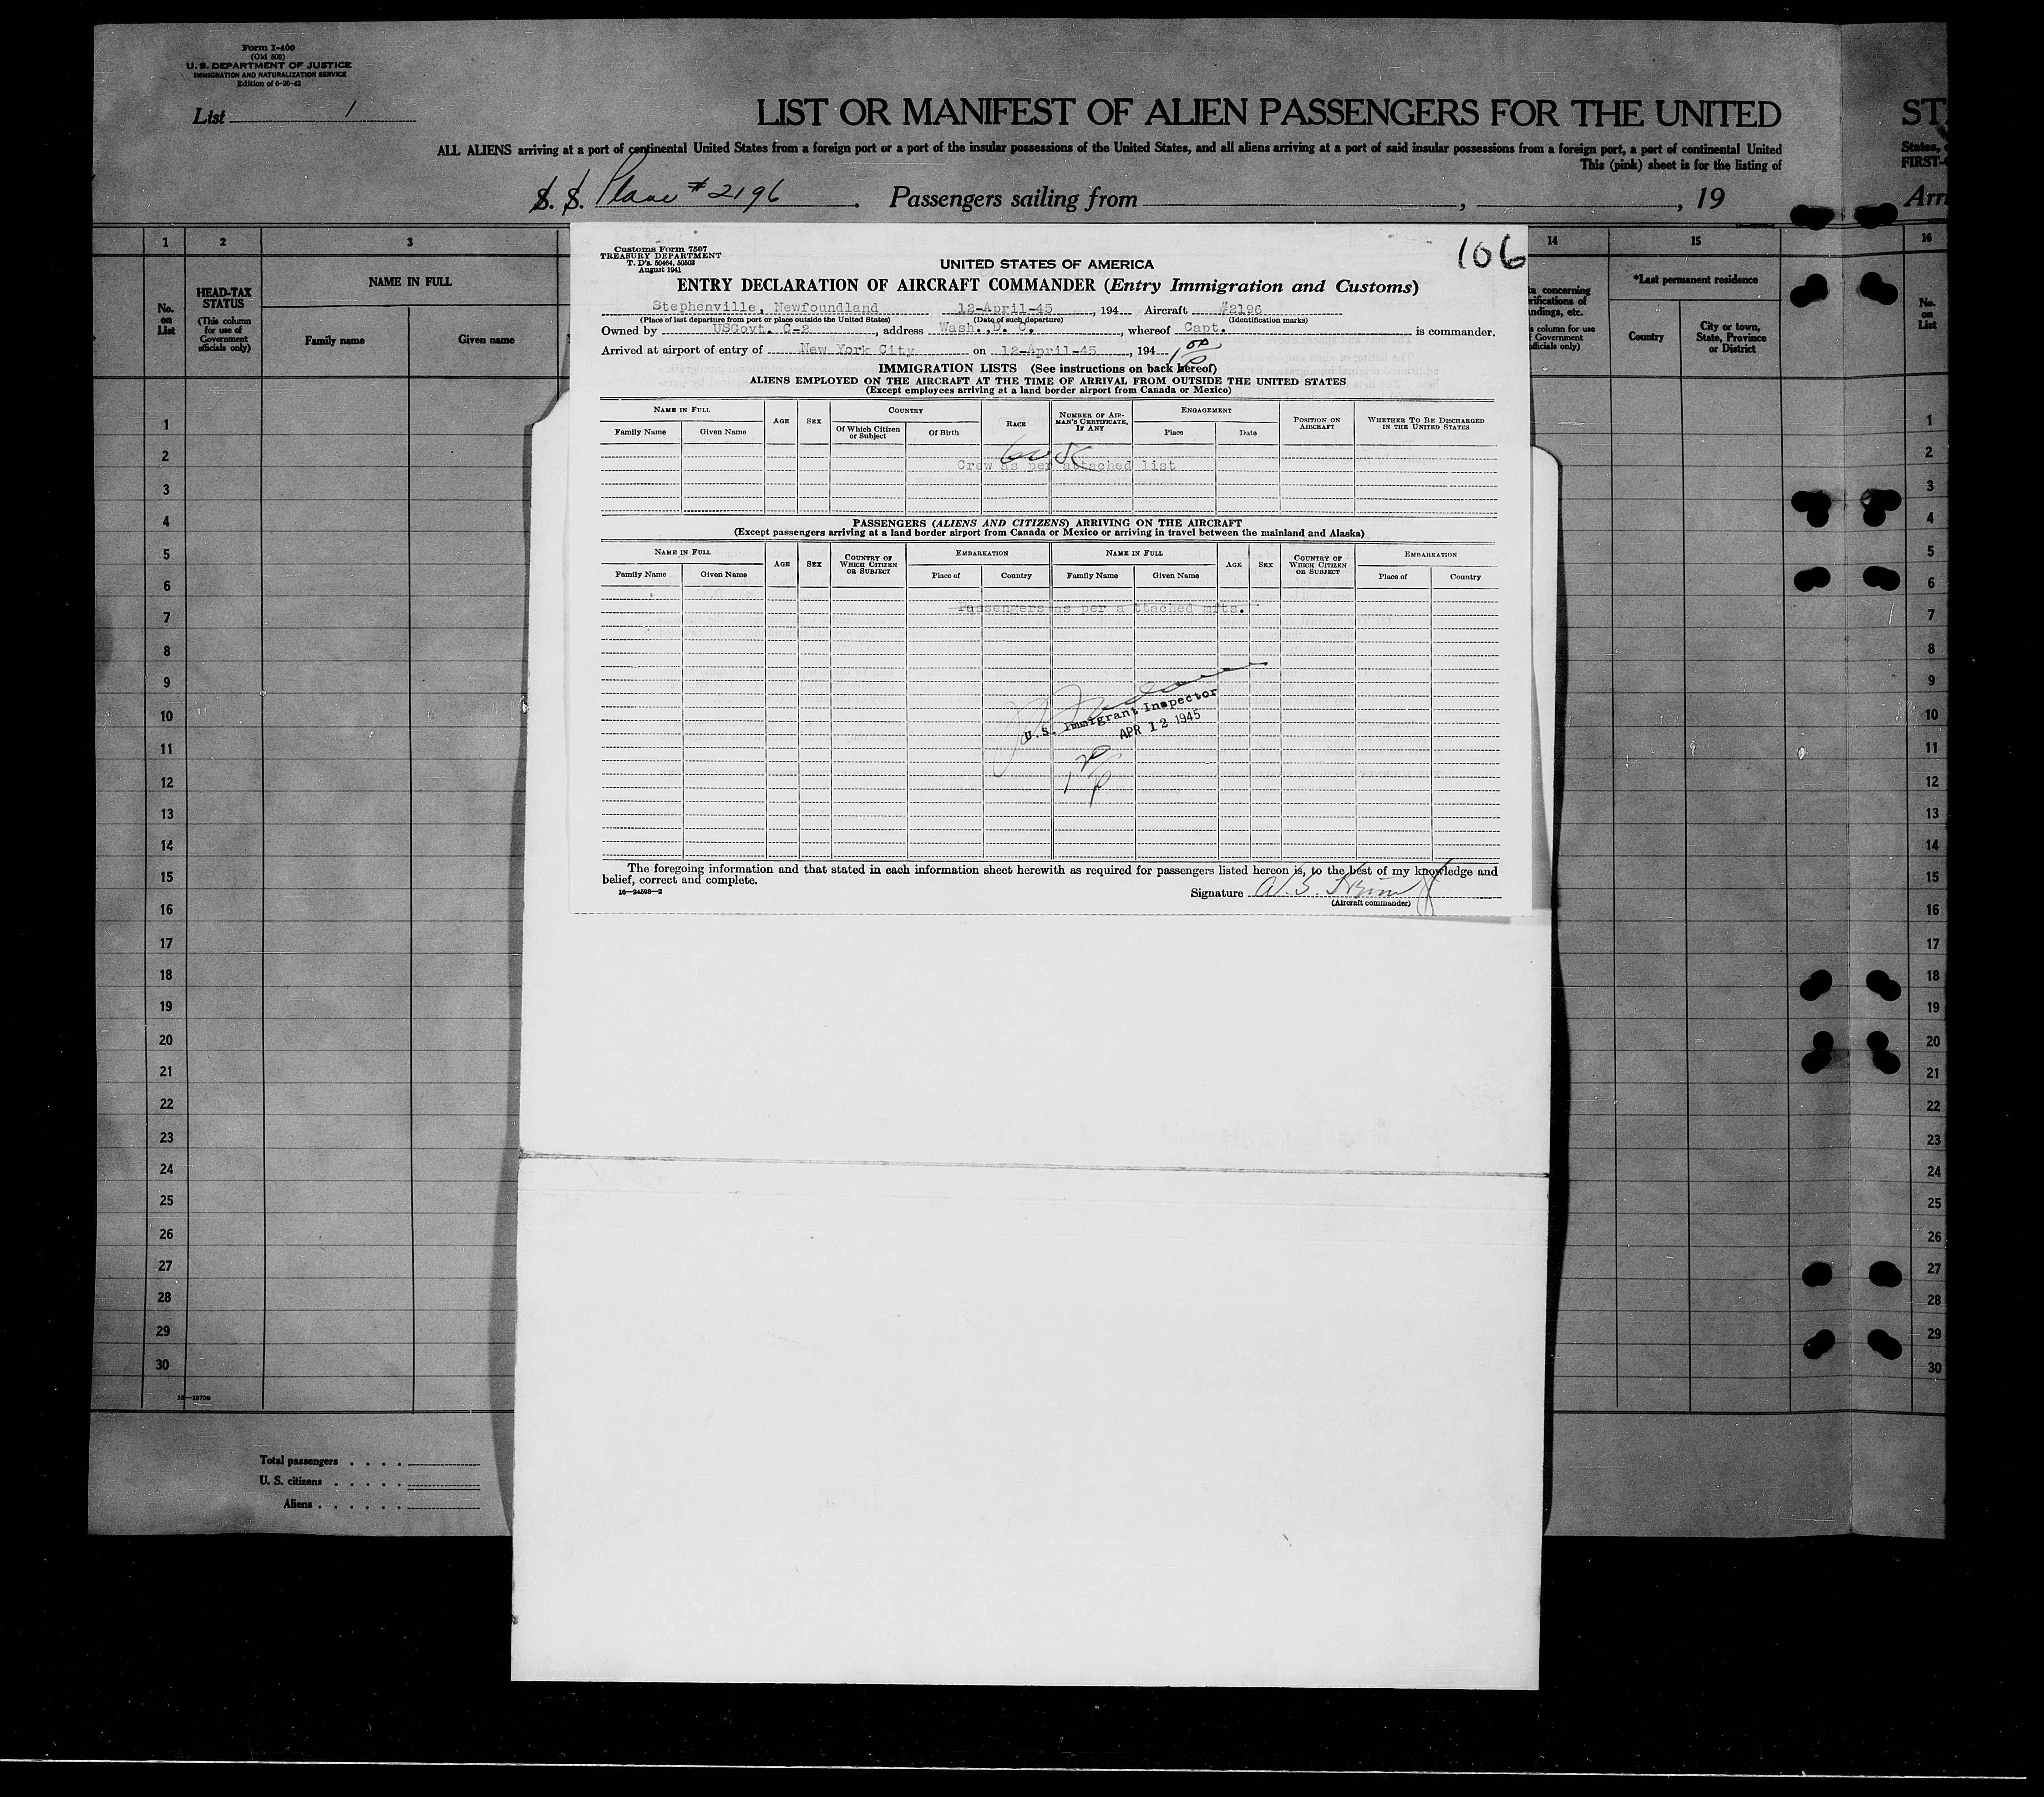 Form I-400
(Old 500)
U. S. DEPARTMENT OF JUSTICE
IMMIGRATION AND NATURALIZATION SERVICE
Edition of 6-20-42
List 1
LIST OR MANIFEST OF ALIEN PASSENGERS FOR THE UNITED
ST
ALL ALIENS arriving at a port of continental United States from a foreign port or a port of the insular possessions of the United States, and all aliens arriving at a port of said insular possessions from a foreign port, a port of continental United
States,
This (pink) sheet is for the listing of
FIRST-
S. S. Plane #2196. Passengers sailing from , , 19
Arri
1 2 3 14 15 16
No. on List
HEAD-TAX STATUS
(This column for use of Government officials only)
NAME IN FULL
Family name Given name
*Last permanent residence
Country City or town, State, Province or District
No. on List
106
Customs Form 7507
TREASURY DEPARTMENT
T. D's. 50464, 50503
August 1941
UNITED STATES OF AMERICA
ENTRY DECLARATION OF AIRCRAFT COMMANDER (Entry Immigration and Customs)
Stephenville, Newfoundland 12-April-45, 194 Aircraft #2196
(Place of last departure from port or place outside the United States) (Date of such departure) (Identification marks)
Owned by USGovt. C-2, address Wash., D. C., whereof Capt. is commander.
Arrived at airport of entry of New York City on 12-April-45, 194
IMMIGRATION LISTS (See instructions on back hereof)
ALIENS EMPLOYED ON THE AIRCRAFT AT THE TIME OF ARRIVAL FROM OUTSIDE THE UNITED STATES
(Except employees arriving at a land border airport from Canada or Mexico)
NAME IN FULL AGE SEX COUNTRY RACE NUMBER OF AIRMAN'S CERTIFICATE, IF ANY ENGAGEMENT POSITION ON AIRCRAFT WHETHER TO BE DISCHARGED IN THE UNITED STATES
Family Name Given Name Of Which Citizen or Subject Of Birth Place Date
Crew as per attached list
PASSENGERS (ALIENS AND CITIZENS) ARRIVING ON THE AIRCRAFT
(Except passengers arriving at a land border airport from Canada or Mexico or arriving in travel between the mainland and Alaska)
NAME IN FULL AGE SEX COUNTRY OF WHICH CITIZEN OR SUBJECT EMBARKATION NAME IN FULL AGE SEX COUNTRY OF WHICH CITIZEN OR SUBJECT EMBARKATION
Family Name Given Name Place of Country Family Name Given Name Place of Country
Passengers as per a ttached mfts.
U. S. Immigrant Inspector
APR 12 1945
The foregoing information and that stated in each information sheet herewith as required for passengers listed hereon is, to the best of my knowledge and
belief, correct and complete.
16—24598—2
Signature
(Aircraft commander)
1 1
2 2
3 3
4 4
5 5
6 6
7 7
8 8
9 9
10 10
11 11
12 12
13 13
14 14
15 15
16 16
17 17
18 18
19 19
20 20
21 21
22 22
23 23
24 24
25 25
26 26
27 27
28 28
29 29
30 30
16—18709
Total passengers
U. S. citizens
Aliens